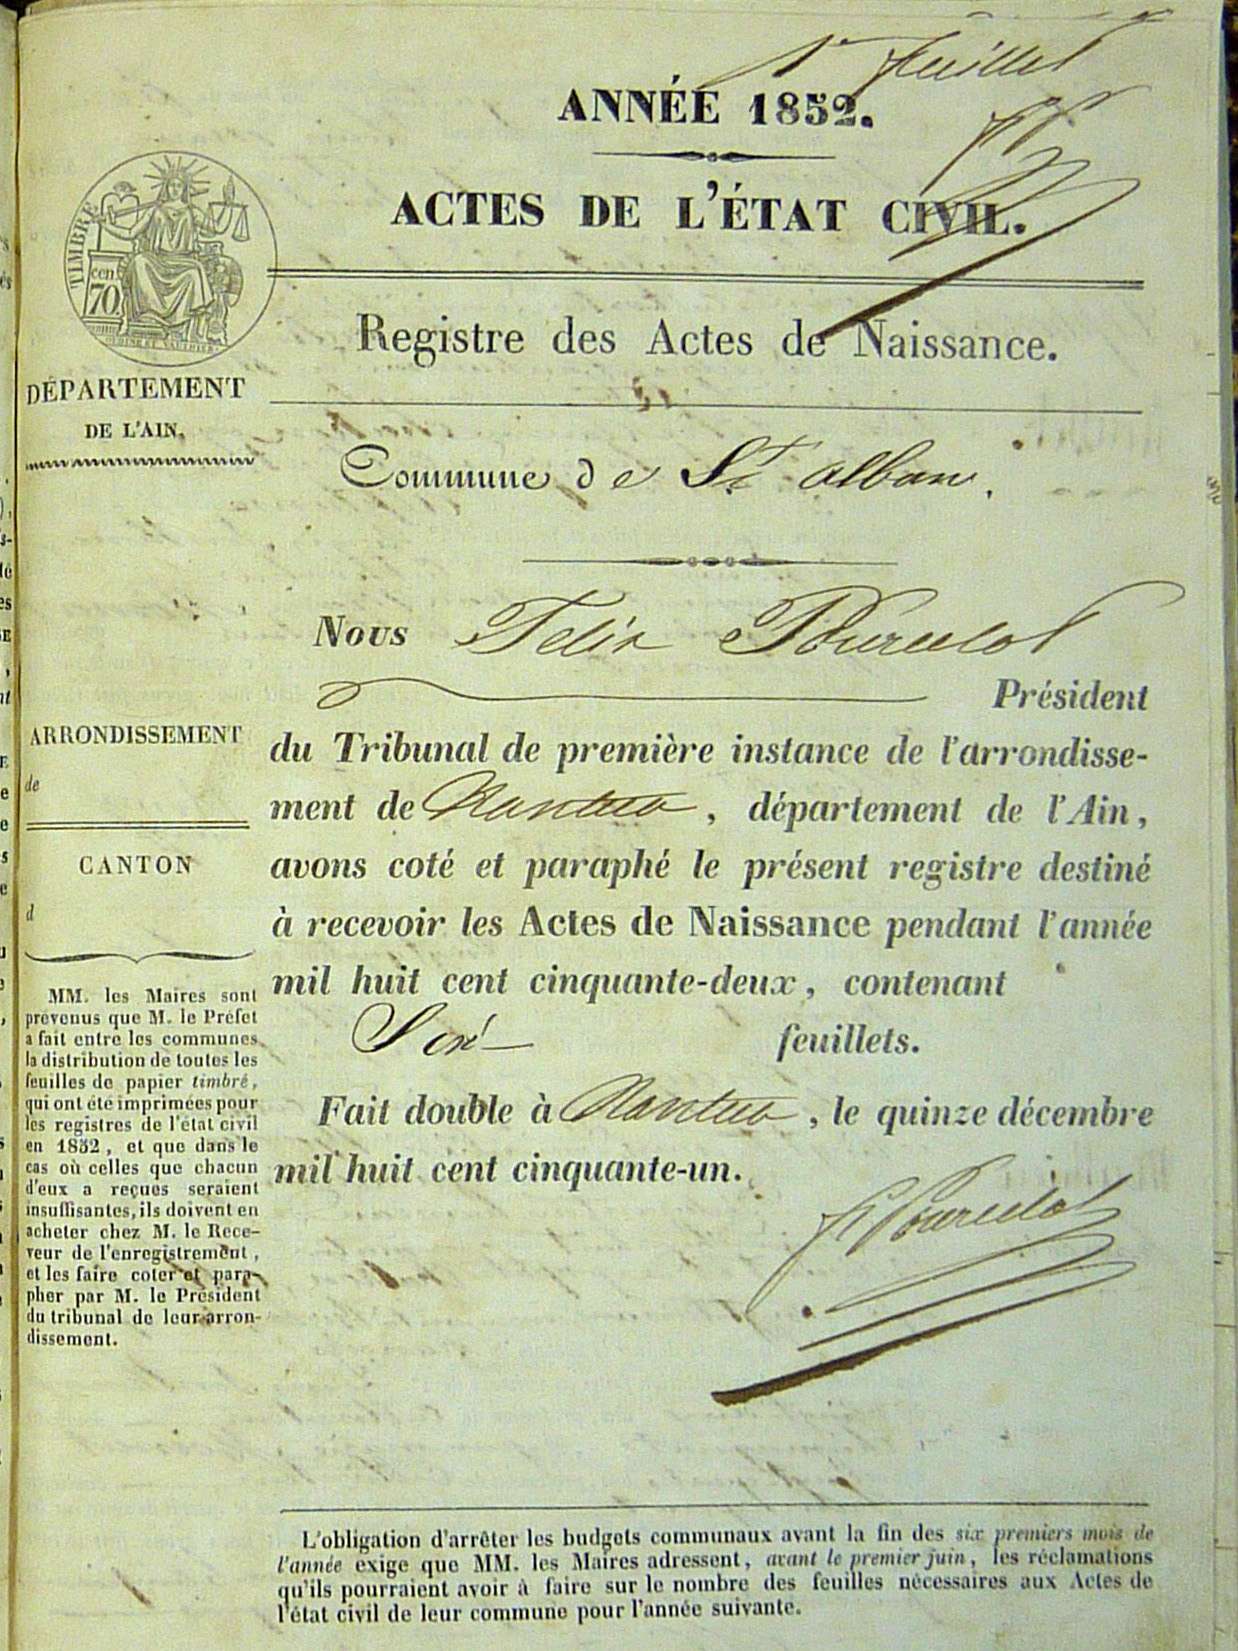 1er feuillet
ANNÉE 1852.
ACTES DE L'ÉTAT CIVIL.
TIMBRE
cen
70
Registre des Actes de Naissance.
DÉPARTEMENT
DE L'AIN.
Commune de St alban.
Nous Felix Pourcelot
Président
du Tribunal de première instance de l'arrondisse-
ment de Nantua, département de l'Ain,
avons coté et paraphé le présent registre destiné
à recevoir les Actes de Naissance pendant l'année
mil huit cent cinquante-deux, contenant
feuillets.
Fait double à Nantua, le quinze décembre
mil huit cent cinquante-un.
F Pourcelot
ARRONDISSEMENT
de
CANTON
d
MM. les Maires sont
prévenus que M. le Préfet
a fait entre les communes
la distribution de toutes les
feuilles de papier timbré,
qui ont été imprimées pour
les registres de l'état civil
en 1852, et que dans le
cas où celles que chacun
d'eux a reçues seraient
insuffisantes, ils doivent en
acheter chez M. le Rece-
veur de l'enregistrement,
et les faire coter et para-
pher par M. le Président
du tribunal de leur arron-
dissement.
L'obligation d'arrêter les budgets communaux avant la fin des six premiers mois de
l'année exige que MM. les Maires adressent, avant le premier juin, les réclamations
qu'ils pourraient avoir à faire sur le nombre des feuilles nécessaires aux Actes de
l'état civil de leur commune pour l'année suivante.